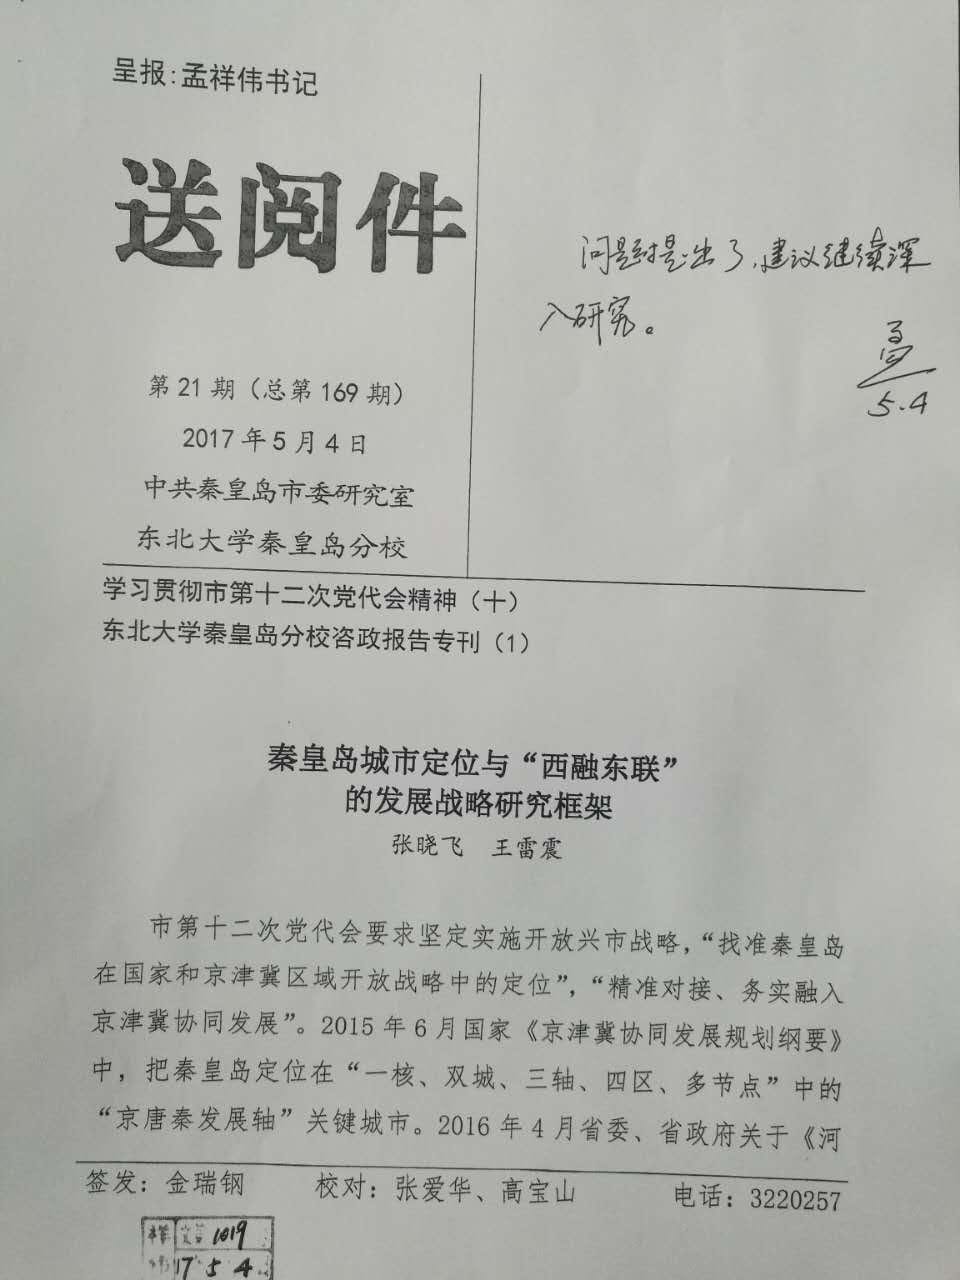 呈报:孟祥伟书记
送阅件
问题提出了,建议继续深
入研究。
孟
5.4
第21期(总第169期)
2017年5月4日
中共秦皇岛市委研究室
东北大学秦皇岛分校
学习贯彻市第十二次党代会精神(十)
东北大学秦皇岛分校咨政报告专刊(1)
秦皇岛城市定位与“西融东联”
的发展战略研究框架
张晓飞 王雷震
市第十二次党代会要求坚定实施开放兴市战略,“找准秦皇岛
在国家和京津冀区域开放战略中的定位”,“精准对接、务实融入
京津冀协同发展”。2015年6月国家《京津冀协同发展规划纲要》
中,把秦皇岛定位在“一核、双城、三轴、四区、多节点”中的
“京唐秦发展轴”关键城市。2016年4月省委、省政府关于《河
签发:金瑞钢 校对:张爱华、高宝山 电话:3220257
1019
17 5 4